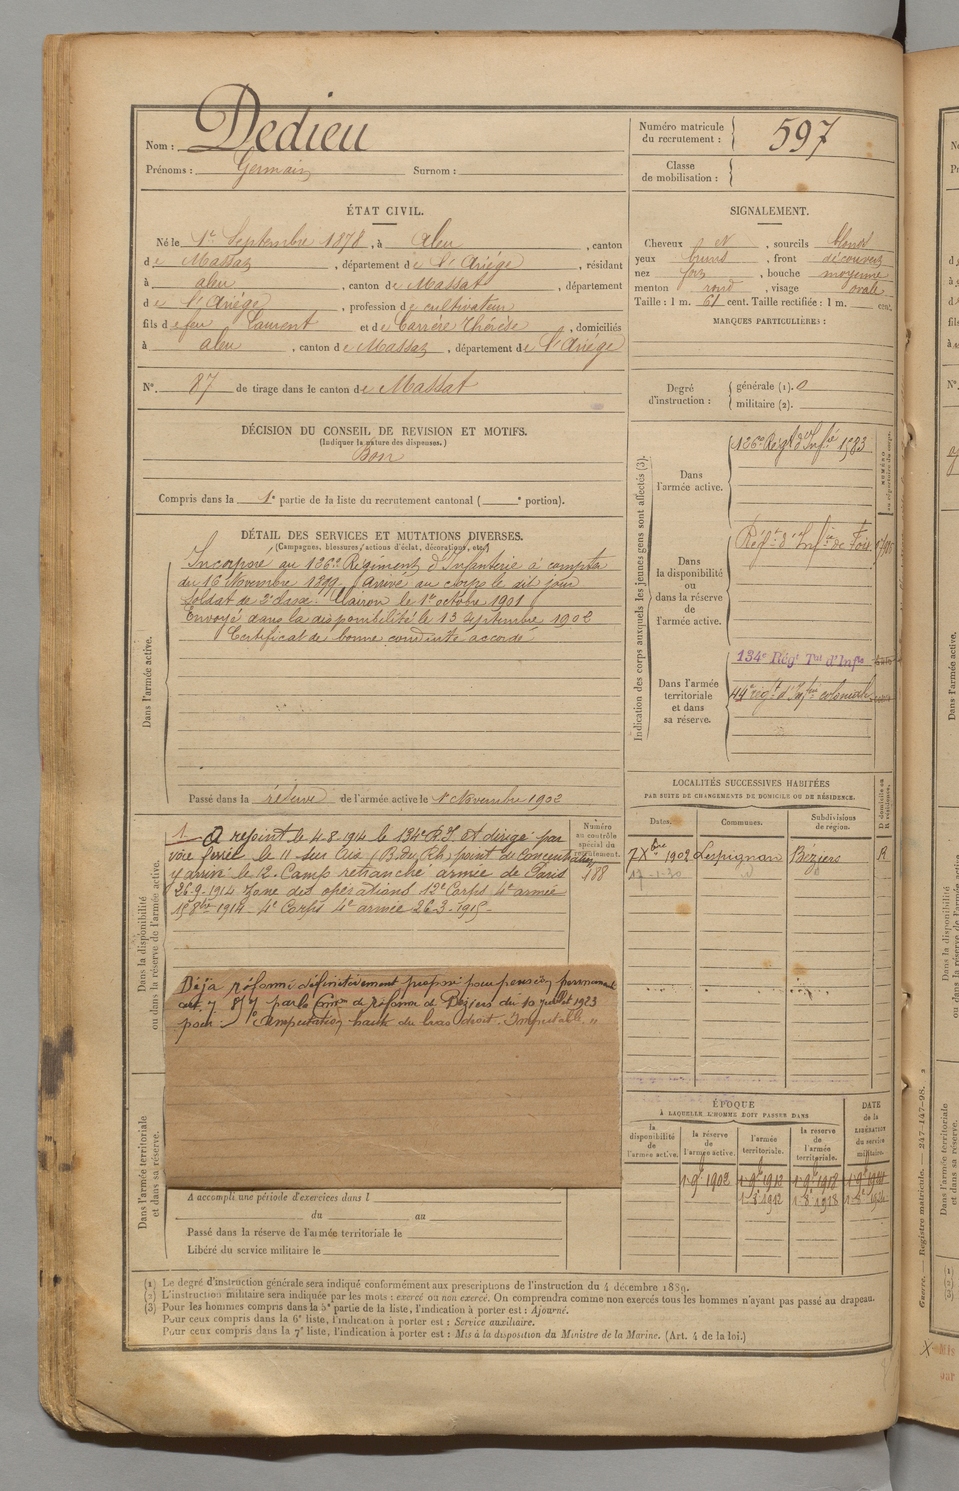 Nom : Dedieu
Prénoms : Germain Surnom :
Numéro matricule du recrutement : 597
Classe de mobilisation :
ÉTAT CIVIL.
Né le 1er Septembre 1878, à Aleu, canton
de Massat, département de l'Ariége, résidant
à aleu, canton de Massat, département
de l'Ariége, profession de cultivateur
fils de feu Laurent et de Carrére Thérèse, domiciliés
à aleu, canton de Massat, département de l'Ariége
N°. 87 de tirage dans le canton de Massat
SIGNALEMENT.
Cheveux , sourcils blonds
yeux bruns, front découvert
nez , bouche moyenne
menton rond, visage ovale
Taille : 1 m. 61 cent. Taille rectifiée : 1 m. cent.
MARQUES PARTICULIÈRES :
Degré d'instruction : générale (1). 0
militaire (2).
DÉCISION DU CONSEIL DE REVISION ET MOTIFS.
(Indiquer la nature des dispenses.)
Bon
Compris dans la 1e partie de la liste du recrutement cantonal ( e portion).
DÉTAIL DES SERVICES ET MUTATIONS DIVERSES.
(Campagnes, blessures, actions d'éclat, décorations, etc.)
Dans l'armée active.
Incorporé au 126e Régiment d'Infanterie à compter
du 16 Novembre 1899. Arrivé au corps le dit jour
soldat de 2e classe. Clairon le 1er octobre 1901
Envoyé dans la disponibilité le 13 septembre 1902
Certificat de bonne conduite accordé
Passé dans la réserve de l'armée active le 1 Novembre 1902
Indication des corps auxquels les jeunes gens sont affectés (3).
Dans l'armée active.
126e Régt d'Infie 1583
Dans la disponibilité ou dans la réserve de l'armée active.
Régt d'Infie de Foix
Dans l'armée territoriale et dans sa réserve.
134e Régt Tal d'Infie
44e régt d'Infie coloniale
LOCALITÉS SUCCESSIVES HABITÉES
PAR SUITE DE CHANGEMENTS DE DOMICILE OU DE RÉSIDENCE.
Dates. Communes. Subdivisions de région. D domicile ou R résidence.
7 Xbre 1902 Lespignan Béziers R
Dans la disponibilité ou dans la réserve de l'armée active.
Numéro au contrôle spécial du recrutement.
188
A rejoint le 4-8-1914 le 134e R.I. et dirigé par
voie ferrée le 11 sur Aix (B. du Rh) point de concentration
y arrivé le 12. Camp retranché armée de Paris
26-9-1914 Zone des opérations 12e Corps 4e armée
1914 4e Corps 4e armée 26-3-1915
Déjà réformé définitivement proposé pour pension permanente
art. 7 par la Comon de réforme de Béziers du 10 juillet 1923
pour : 1° amputation haute du bras droit. Imputable "
Dans l'armée territoriale et dans sa réserve.
A accompli une période d'exercices dans l
du au
Passé dans la réserve de l'armée territoriale le
Libéré du service militaire le
ÉPOQUE
À LAQUELLE L'HOMME DOIT PASSER DANS
la disponibilité de l'armée active.
la réserve de l'armée active.
l'armée territoriale.
la réserve de l'armée territoriale.
DATE de la LIBÉRATION du service militaire.
(1) Le degré d'instruction générale sera indiqué conformément aux prescriptions de l'instruction du 4 décembre 1889.
(2) L'instruction militaire sera indiquée par les mots : exercé ou non exercé. On comprendra comme non exercés tous les hommes n'ayant pas passé au drapeau.
(3) Pour les hommes compris dans la 5e partie de la liste, l'indication à porter est : Ajourné.
Pour ceux compris dans la 6e liste, l'indication à porter est : Service auxiliaire.
Pour ceux compris dans la 7e liste, l'indication à porter est : Mis à la disposition du Ministre de la Marine. (Art. 4 de la loi.)
Guerre. Registre matricule. — 247-147-98. 2